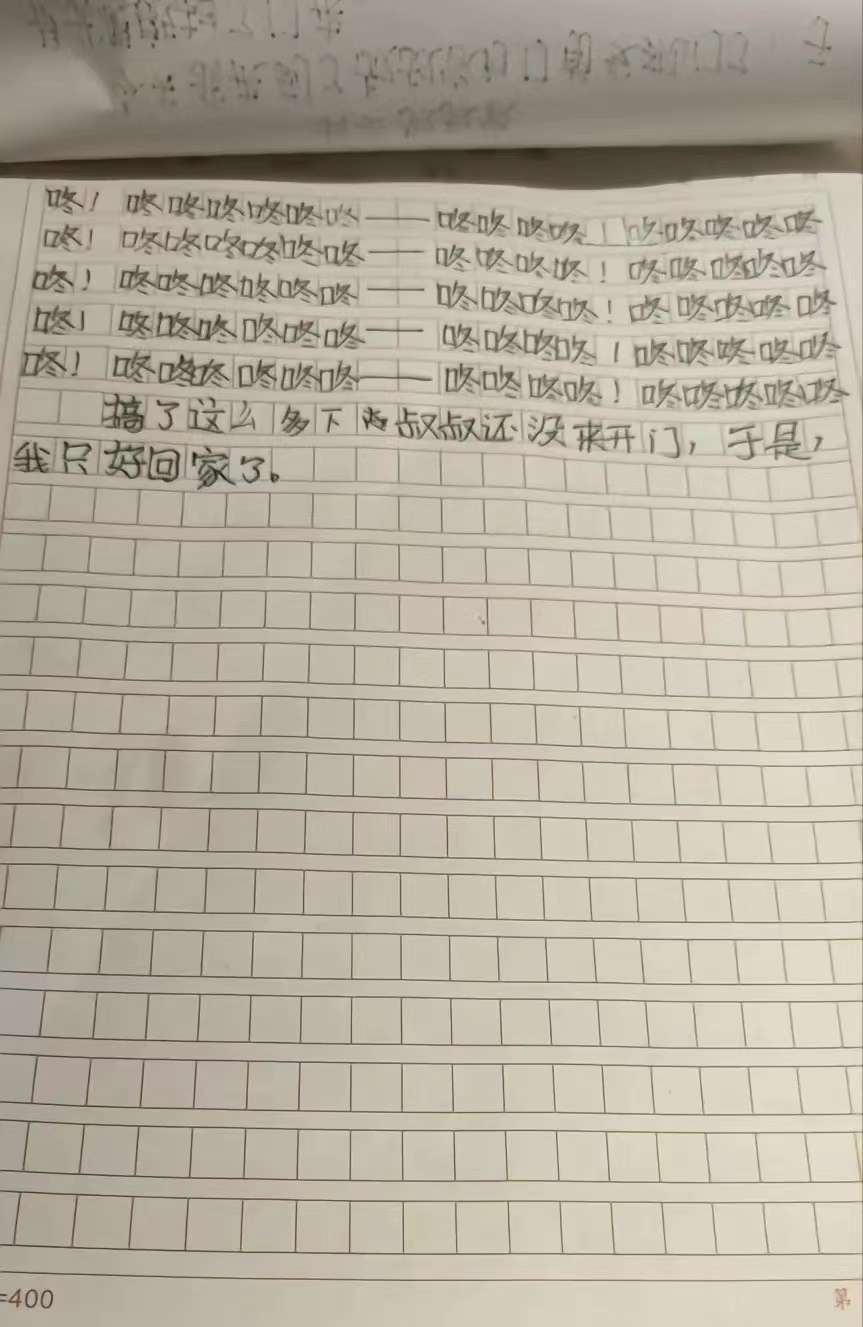 咚！咚咚咚咚咚咚——咚咚咚咚！咚咚咚咚咚
咚！咚咚咚咚咚咚——咚咚咚咚！咚咚咚咚咚
咚！咚咚咚咚咚咚——咚咚咚咚！咚咚咚咚咚
咚！咚咚咚咚咚咚——咚咚咚咚！咚咚咚咚咚
咚！咚咚咚咚咚咚——咚咚咚咚！咚咚咚咚咚
搞了这么多下 叔叔还没来开门，于是，
我只好回家了。
=400
第